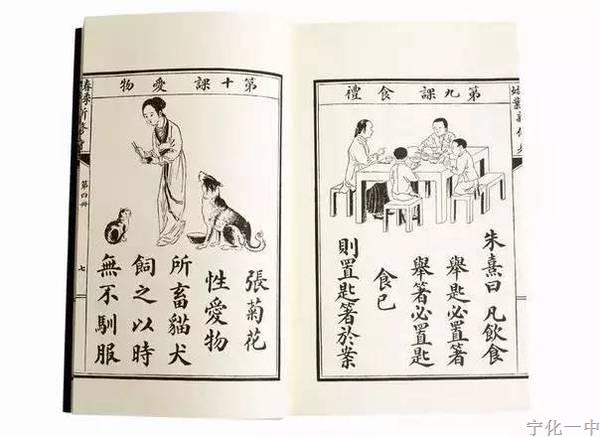 第九課 食禮
朱熹曰 凡飲食
舉匙必置箸
舉箸必置匙
食已
則置匙箸於案
第十課 愛物
張菊花
性愛物
所畜貓犬
飼之以時
無不馴服
第四册
七
宁化一中